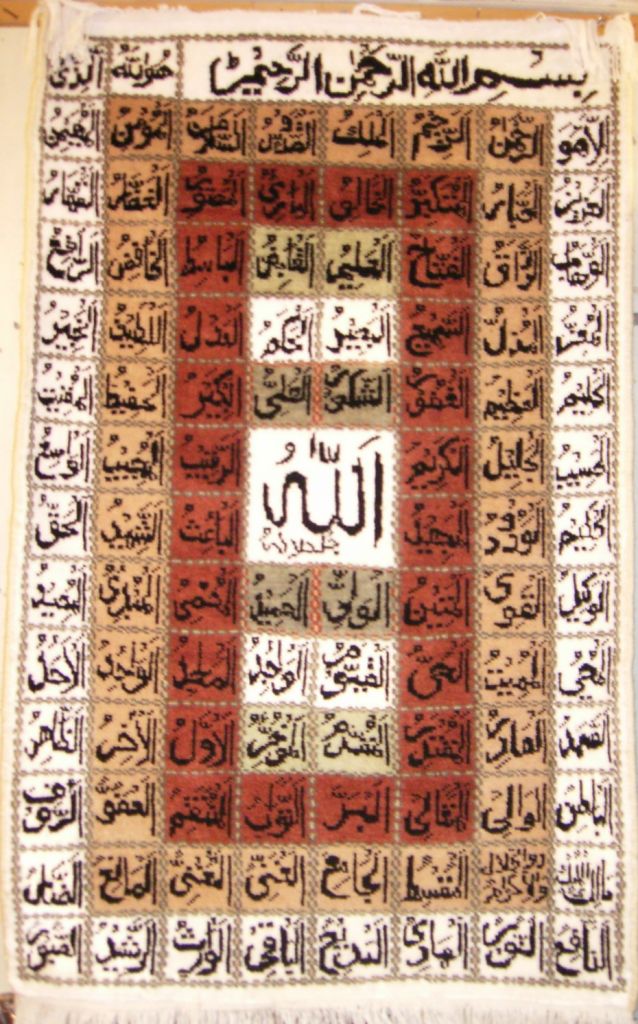 بِسْمِ اللهِ الرَّحْمٰنِ الرَّحِيْمِ هُوَ اللهُ الَّذِىْ
لَآ اِلٰهَ اِلَّا هُوَ الرَّحْمٰنُ الرَّحِيْمُ الْمَلِكُ الْقُدُّوْسُ السَّلَامُ الْمُؤْمِنُ الْمُهَيْمِنُ
الْعَزِيْزُ الْجَبَّارُ الْمُتَكَبِّرُ الْخَالِقُ الْبَارِئُ الْمُصَوِّرُ الْغَفَّارُ الْقَهَّارُ
الْوَهَّابُ الرَّزَّاقُ الْفَتَّاحُ الْعَلِيْمُ الْقَابِضُ الْبَاسِطُ الْخَافِضُ الرَّافِعُ
الْمُعِزُّ الْمُذِلُّ السَّمِيْعُ الْبَصِيْرُ الْحَكَمُ الْعَدْلُ اللَّطِيْفُ الْخَبِيْرُ
الْحَلِيْمُ الْعَظِيْمُ الْغَفُوْرُ الشَّكُوْرُ الْعَلِىُّ الْكَبِيْرُ الْحَفِيْظُ الْمُقِيْتُ
الْحَسِيْبُ الْجَلِيْلُ الْكَرِيْمُ اللهُ الرَّقِيْبُ الْمُجِيْبُ الْوَاسِعُ
الْحَكِيْمُ الْوَدُوْدُ الْمَجِيْدُ جل جلاله الْبَاعِثُ الشَّهِيْدُ الْحَقُّ
الْوَكِيْلُ الْقَوِىُّ الْمَتِيْنُ الْوَلِىُّ الْحَمِيْدُ الْمُحْصِىْ الْمُبْدِئُ الْمُعِيْدُ
الْمُحْيِىْ الْمُمِيْتُ الْحَىُّ الْقَيُّوْمُ الْوَاجِدُ الْمَاجِدُ الْوَاحِدُ الْاَحَدُ
الصَّمَدُ الْقَادِرُ الْمُقْتَدِرُ الْمُقَدِّمُ الْمُؤَخِّرُ الْاَوَّلُ الْاٰخِرُ الظَّاهِرُ
الْبَاطِنُ الْوَالِىْ الْمُتَعَالِىْ الْبَرُّ التَّوَّابُ الْمُنْتَقِمُ الْعَفُوُّ الرَّءُوْفُ
مَالِكُ الْمُلْكِ ذُو الْجَلَالِ وَالْاِكْرَامِ الْمُقْسِطُ الْجَامِعُ الْغَنِىُّ الْمُغْنِىْ الْمَانِعُ الضَّارُّ
النَّافِعُ النُّوْرُ الْهَادِىْ الْبَدِيْعُ الْبَاقِىْ الْوَارِثُ الرَّشِيْدُ الصَّبُوْرُ